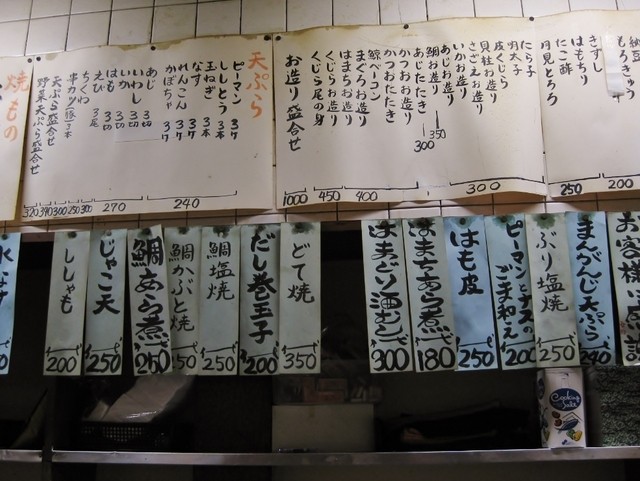 納豆
もろきゅう
200
きずし
はもちり
たこ酢
月見とろろ
250
たら子
明太子
皮くじら
貝柱お造り
さざえお造り
いかお造り
300
あじお造り
鯛お造り
350
あじたたき
300
かつおお造り
かつおたたき
鯨ベーコン
まぐろお造り
はまちお造り
400
くじらお造り
くじら尾の身
450
お造り盛合せ
1000
天ぷら
ピーマン 3ケ
ししとう 3本
玉ねぎ 3ケ
れんこん 3ケ
かぼちゃ 3ケ
240
あじ 3切
いわし 3切
いか 3切
はも 3切
えび 3尾
270
ちくわ
串カツ(豚)3本
天ぷら盛合せ
野菜天ぷら盛合せ
320 390 300 250 300
焼もの
まんがんじ天ぷら
240
ぶり塩焼
250
ピーマンとナスのごま和え
200
はも皮
250
はまちあら煮
180
はまぐり酒むし
300
どて焼
350
だし巻玉子
200
鯛塩焼
250
鯛かぶと焼
250
鯛あら煮
250
じゃこ天
250
ししゃも
200
水なす
Cooking